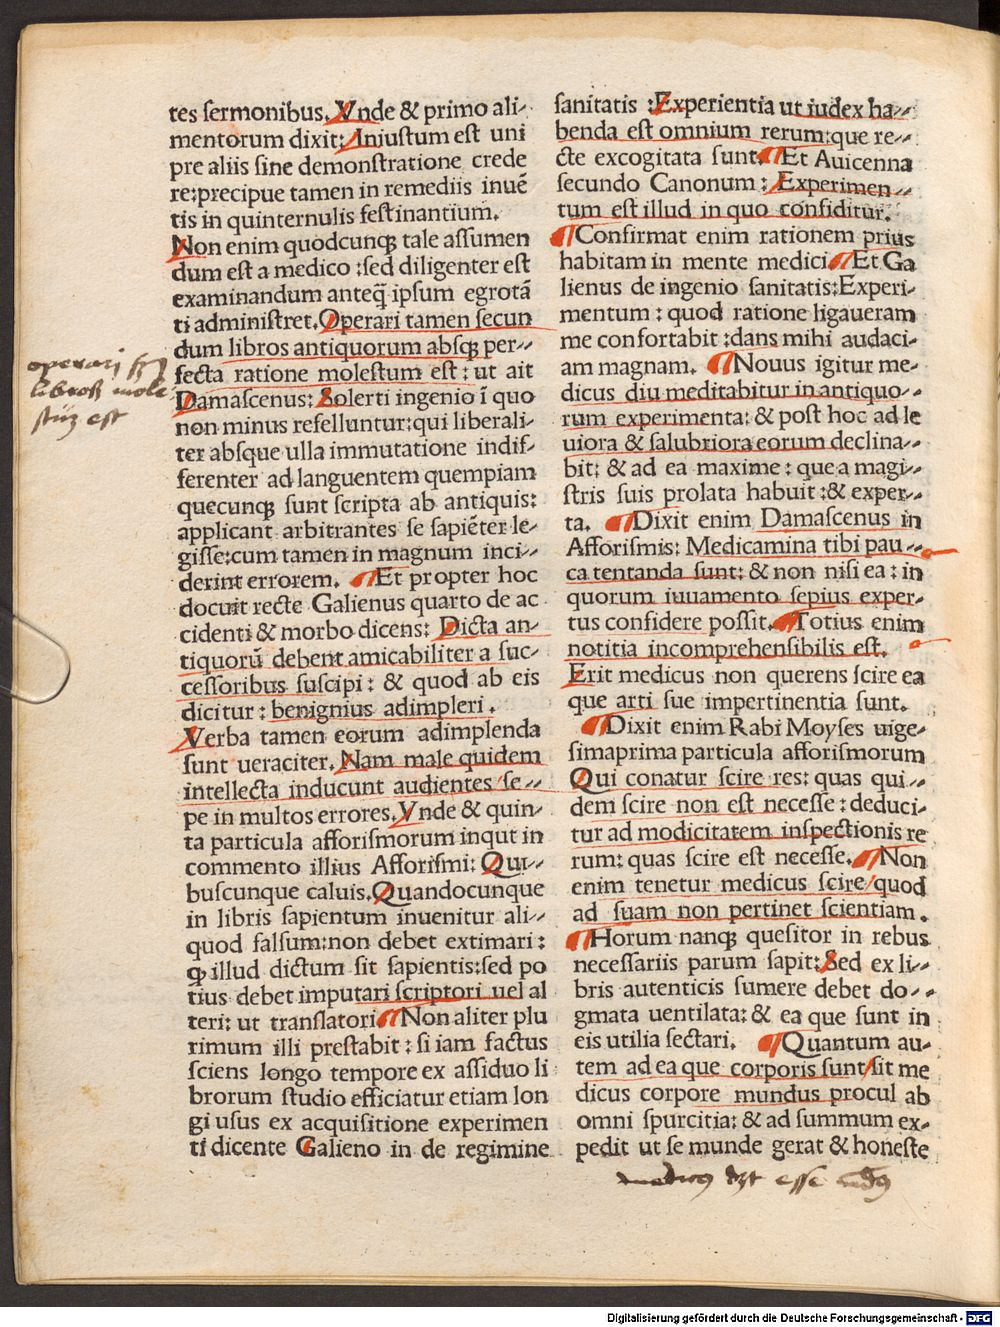 tes sermonibus. Vnde & primo ali-
mentorum dixit: Iniustum est uni
pre aliis sine demonstratione crede
re: precipue tamen in remediis inuẽ
tis in quinternulis festinantium.
Non enim quodcunqꝫ tale assumen
dum est a medico : sed diligenter est
examinandum anteq̃ ipsum egrotã
ti administret. Operari tamen secun
dum libros antiquorum absqꝫ per-
fecta ratione molestum est : ut ait
Damascenus: Solerti ingenio ĩ quo
non minus refelluntur: qui liberali-
ter absque ulla immutatione indif-
ferenter ad languentem quempiam
quecunqꝫ sunt scripta ab antiquis:
applicant arbitrantes se sapiẽter le-
gisse: cum tamen in magnum inci-
derint errorem. ¶Et propter hoc
docuit recte Galienus quarto de ac
cidenti & morbo dicens: Dicta an-
tiquorũ debent amicabiliter a suc-
cessoribus suscipi : & quod ab eis
dicitur : benignius adimpleri.
Verba tamen eorum adimplenda
sunt ueraciter. Nam male quidem
intellecta inducunt audientes/se-
pe in multos errores. Vnde & quin-
ta particula afforismorum inqut in
commento illius Afforismi: Qui-
buscunque caluis. Quandocunque
in libris sapientum inuenitur ali-
quod falsum: non debet extimari :
ꝙ illud dictum sit sapientis: sed po
tius debet imputari scriptori uel al
teri: ut translatori ¶Non aliter plu
rimum illi prestabit : si iam factus
sciens longo tempore ex assiduo li
brorum studio efficiatur etiam lon
gi usus ex acquisitione experimen
ti dicente Galieno in de regimine
operarj
libros mole
stũ est
sanitatis : Experientia ut iudex ha-
benda est omnium rerum: que re-
cte excogitata sunt. ¶Et Auicenna
secundo Canonum : Experimen-
tum est illud in quo confiditur.
¶Confirmat enim rationem prius
habitam in mente medici ¶Et Ga
lienus de ingenio sanitatis: Experi-
mentum : quod ratione ligaueram
me confortabit : dans mihi audaci-
am magnam. ¶Nouus igitur me-
dicus diu meditabitur in antiquo-
rum experimenta: & post hoc ad le
uiora & salubriora eorum declina-
bit: & ad ea maxime : que a magi-
stris suis prolata habuit : & exper-
ta. ¶Dixit enim Damascenus in
Afforismis: Medicamina tibi pau-
ca tentanda sunt: & non nisi ea : in
quorum iuuamento sepius exper-
tus confidere possit. ¶Totius enim
notitia incomprehensibilis est.
Erit medicus non querens scire ea
que arti sue impertinentia sunt.
¶Dixit enim Rabi Moyses uige-
simaprima particula afforismorum
Qui conatur scire res: quas qui-
dem scire non est necesse : deduci-
tur ad modicitatem inspectionis re
rum: quas scire est necesse. ¶Non
enim tenetur medicus scire/quod
ad suam non pertinet scientiam.
¶Horum nanqꝫ quesitor in rebus
necessariis parum sapit: Sed ex li-
bris autenticis sumere debet do-
gmata uentilata: & ea que sunt in
eis utilia sectari. ¶Quantum au-
tem ad ea que corporis sunt/sit me
dicus corpore mundus procul ab
omni spurcitia: & ad summum ex-
pedit ut se munde gerat & honeste
medicus esse
Digitalisierung gefördert durch die Deutsche Forschungsgemeinschaft - DFG